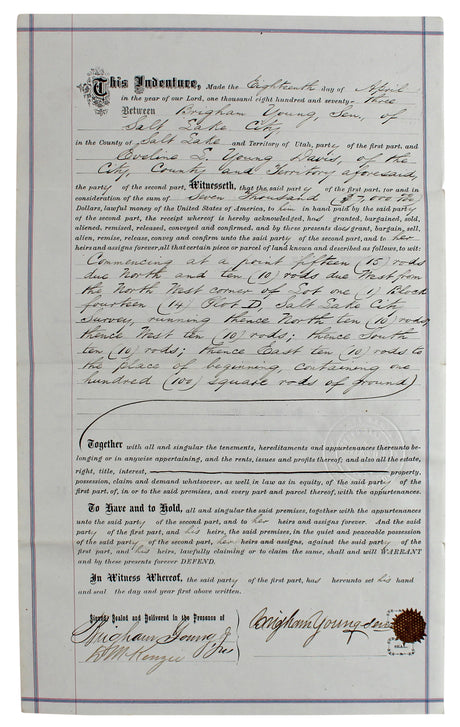 This Indenture, Made the Eighteenth day of April
in the year of our Lord, one thousand eight hundred and seventy-three
Between Brigham Young, Sen, of
Salt Lake City
in the County of Salt Lake and Territory of Utah, party of the first part, and
Eveline L. Young Davis, of the
City, County and Territory aforesaid,
the party of the second part, Witnesseth, that the said party of the first part, for and in
consideration of the sum of Seven Thousand ($7,000
Dollars, lawful money of the United States of America, to him in hand paid by the said party
of the second part, the receipt whereof is hereby acknowledged, has granted, bargained, sold,
aliened, remised, released, conveyed and confirmed, and by these presents does grant, bargain, sell,
alien, remise, release, convey and confirm unto the said party of the second part, and to her
heirs and assigns forever, all that certain piece or parcel of land known and described as follows, to wit:
Commencing at a point fifteen (15) rods
due North and ten (10) rods due West from
the North West corner of Lot one (1) Block
fourteen (14) Plot D, Salt Lake City
Survey, running thence North ten (10) rods;
thence West ten (10) rods; thence South
ten (10) rods; thence East ten (10) rods to
the place of beginning, containing one
hundred (100) square rods of ground)
Together with all and singular the tenements, hereditaments and appurtenances thereunto be-
longing or in anywise appertaining, and the rents, issues and profits thereof; and also all the estate,
right, title, interest, property,
possession, claim and demand whatsoever, as well in law as in equity, of the said party of the
first part, of, in or to the said premises, and every part and parcel thereof, with the appurtenances.
To Have and to Hold, all and singular the said premises, together with the appurtenances
unto the said party of the second part, and to her heirs and assigns forever. And the said
party of the first part, and his heirs, the said premises, in the quiet and peaceable possession
of the said party of the second part, her heirs and assigns, against the said party of the
first part, and his heirs, lawfully claiming or to claim the same, shall and will WARRANT
and by these presents forever DEFEND.
In Witness Whereof, the said party of the first part, has hereunto set his hand
and seal the day and year first above written.
Signed Sealed and Delivered in the Presence of
Brigham Young Jr
McKenzie
Brigham Young Sen
SEAL